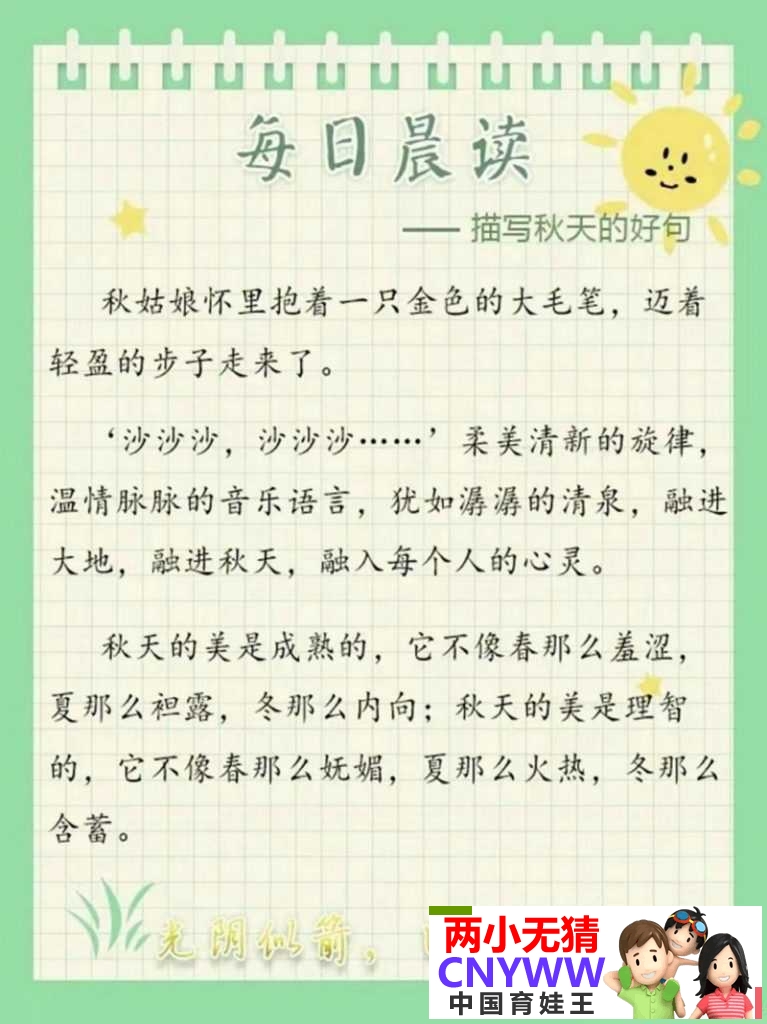 每日晨读
—— 描写秋天的好句
秋姑娘怀里抱着一只金色的大毛笔，迈着
轻盈的步子走来了。
‘沙沙沙，沙沙沙……’柔美清新的旋律，
温情脉脉的音乐语言，犹如潺潺的清泉，融进
大地，融进秋天，融入每个人的心灵。
秋天的美是成熟的，它不像春那么羞涩，
夏那么袒露，冬那么内向；秋天的美是理智
的，它不像春那么妩媚，夏那么火热，冬那么
含蓄。
光阴似箭，
两小无猜
CNYWW
中国育娃王